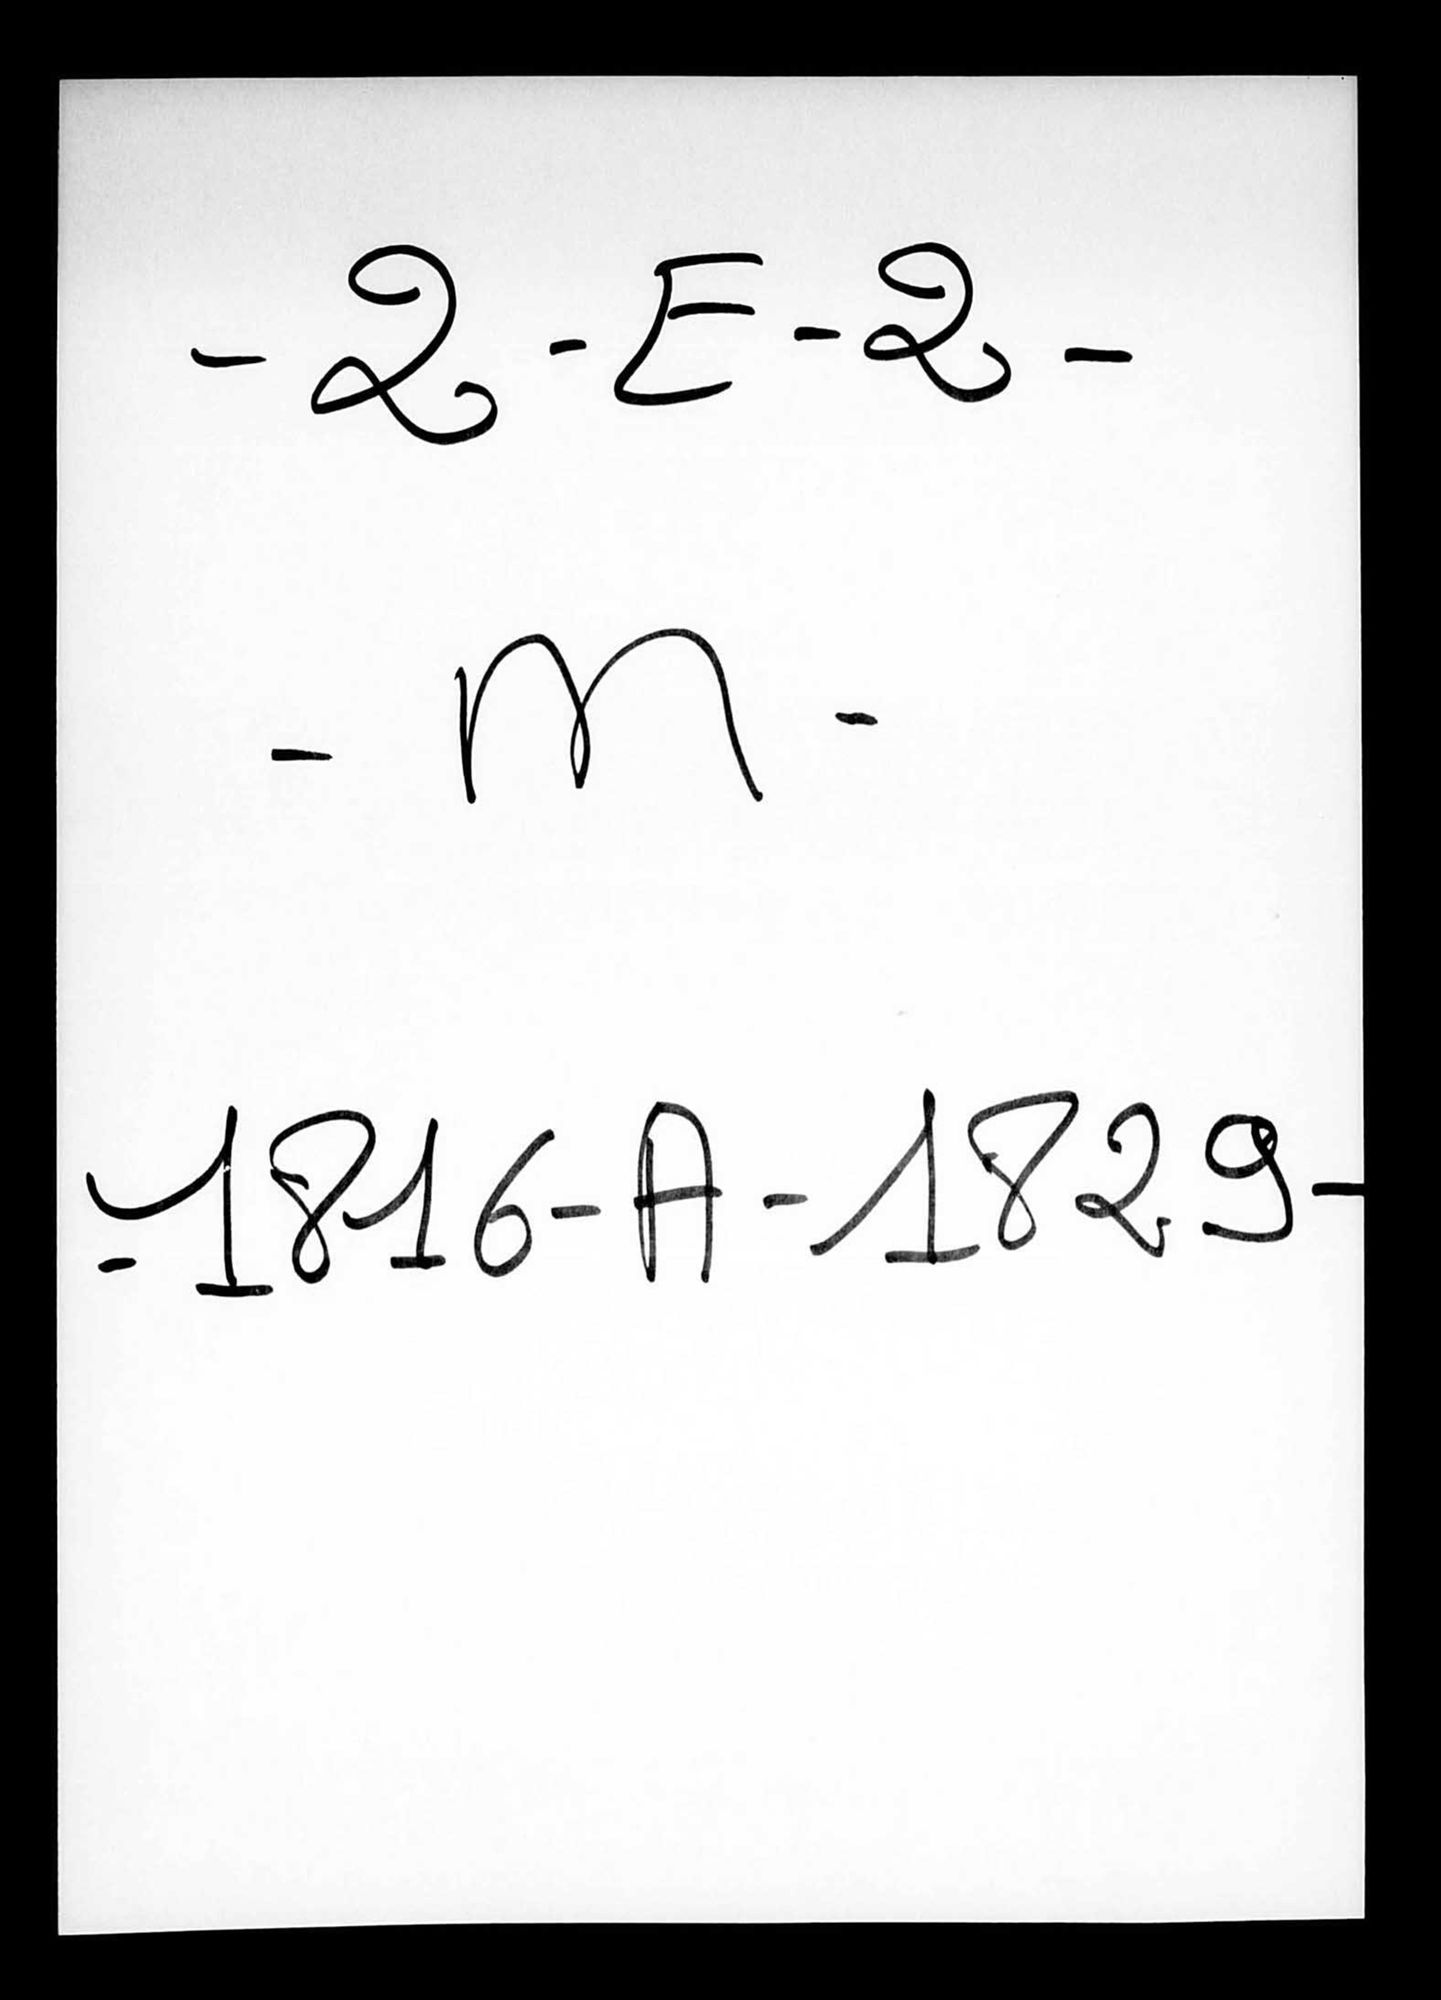 - 2 - E - 2 -
- M -
- 1816 - A - 1829 -